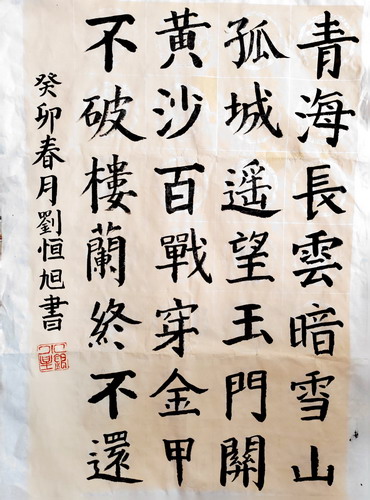 青海長雲暗雪山
孤城遥望玉門關
黄沙百戰穿金甲
不破樓蘭終不還
癸卯春月劉恒旭書